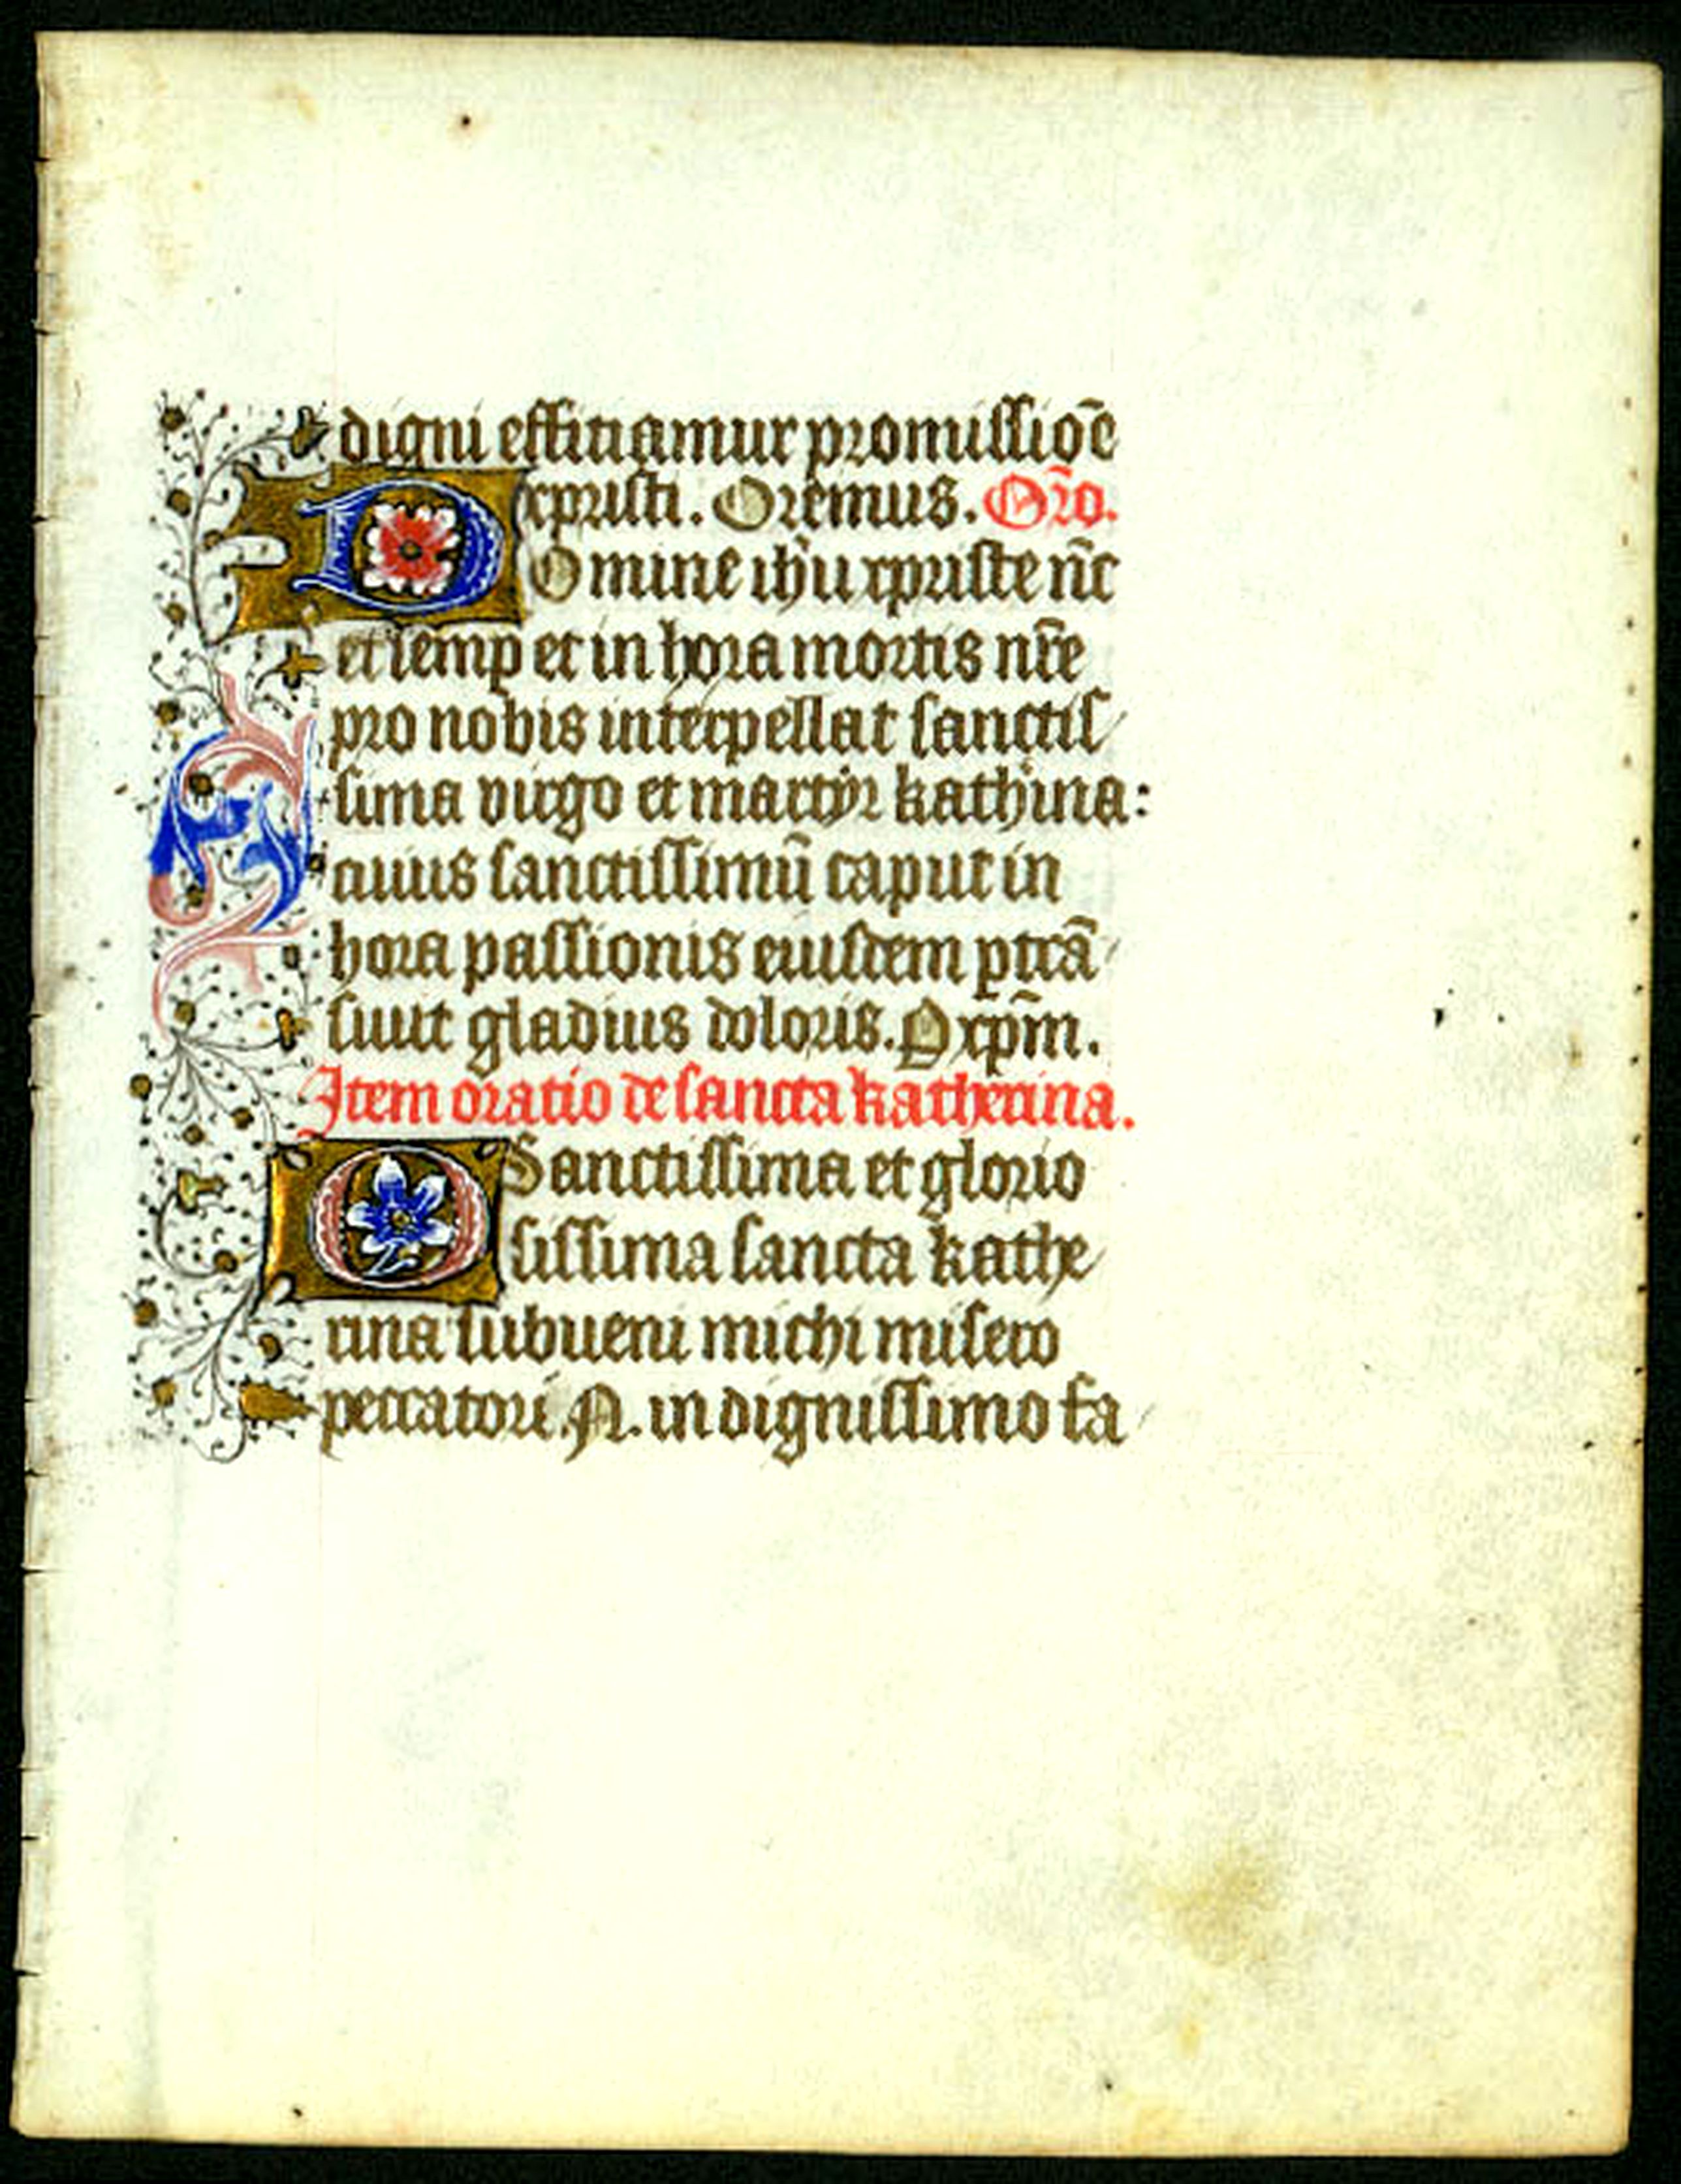 digni efficiamur promissiōē
xpristi. Oremus. Orō.
DOmine ihū xpriste nc̄
et semp et in hora mortis nr̄e
pro nobis interpellat sanctis
sima virgo et martyr kathina:
cuius sanctissimū caput in
hora passionis eiusdem ptrā
siuit gladius doloris. Q xp̄m.
Item oratio de sancta katherina.
O Sanctissima et glorio
sissima sancta kathe
rina subueni michi misero
peccatori .N. in dignissimo fa